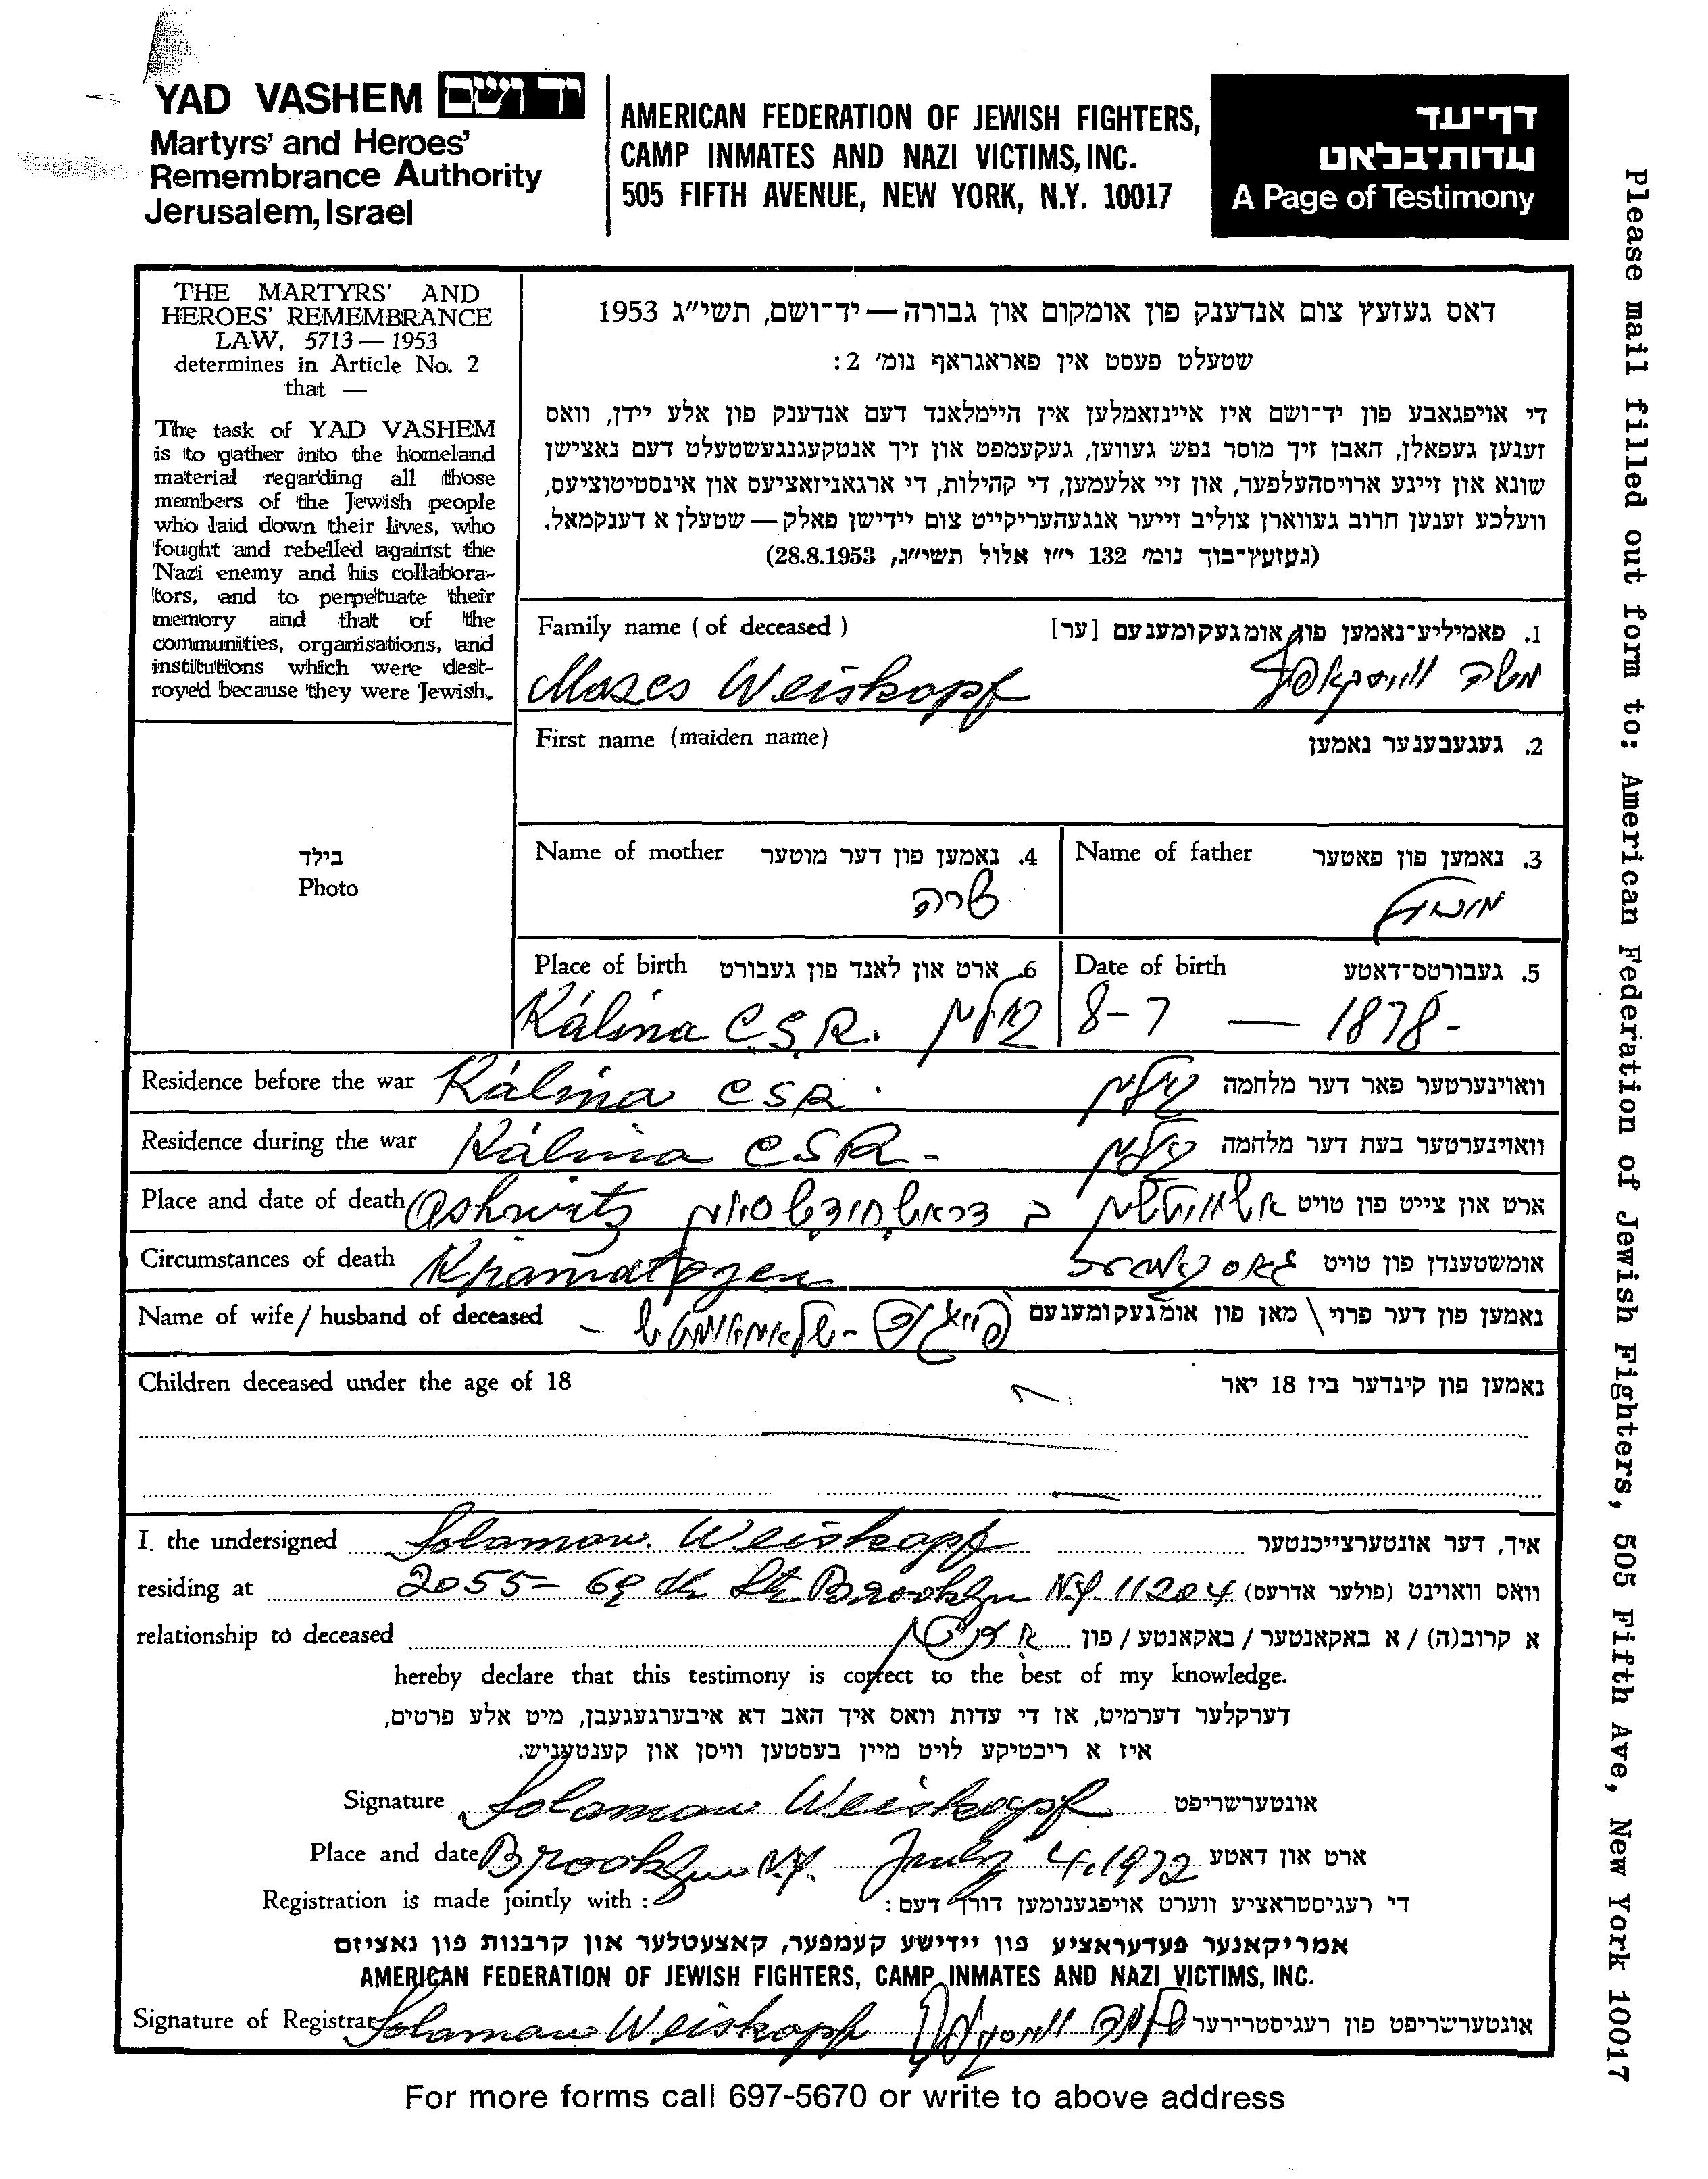 YAD VASHEM יד ושם
Martyrs' and Heroes'
Remembrance Authority
Jerusalem, Israel
AMERICAN FEDERATION OF JEWISH FIGHTERS,
CAMP INMATES AND NAZI VICTIMS, INC.
505 FIFTH AVENUE, NEW YORK, N.Y. 10017
דף־עד
עדות־בלאט
A Page of Testimony
THE MARTYRS' AND
HEROES' REMEMBRANCE
LAW, 5713 — 1953
determines in Article No. 2
that —
The task of YAD VASHEM
is to gather into the homeland
material regarding all those
members of the Jewish people
who laid down their lives, who
fought and rebelled against the
Nazi enemy and his collabora-
tors, and to perpetuate their
memory and that of the
communities, organisations, and
institutions which were dest-
royed because they were Jewish.
דאס געזעץ צום אנדענק פון אומקום און גבורה — יד־ושם, תשי״ג 1953
שטעלט פעסט אין פאראגראף נומ׳ 2:
די אויפגאבע פון יד־ושם איז איינזאמלען אין היימלאנד דעם אנדענק פון אלע יידן, וואס
זענען געפאלן, האבן זיך מוסר נפש געווען, געקעמפט און זיך אנטקעגנגעשטעלט דעם נאצישן
שונא און זיינע ארויסהעלפער, און זיי אלעמען, די קהילות, די ארגאניזאציעס און אינסטיטוציעס,
וועלכע זענען חרוב געווארן צוליב זייער אנגעהעריקייט צום יידישן פאלק — שטעלן א דענקמאל.
(געזעץ־בוך נומ׳ 132 י״ז אלול תשי״ג, 28.8.1953)
Family name ( of deceased ) 1. פאמיליע־נאמען פון אומגעקומענעם [ער]
Moses Weiskopf משה ווייסקאפף
First name (maiden name) 2. געגעבענער נאמען
בילד
Photo
Name of mother 4. נאמען פון דער מוטער
שרה
Name of father 3. נאמען פון פאטער
Place of birth 6. ארט און לאנד פון געבורט
Kálina C.S.R.
Date of birth 5. געבורטס־דאטע
8-7 — 1878-
Residence before the war Kálina CSR. וואוינערטער פאר דער מלחמה
Residence during the war Kálina CSR- וואוינערטער בעת דער מלחמה
Place and date of death Oshwitz ארט און צייט פון טויט
Circumstances of death אומשטענדן פון טויט
Name of wife / husband of deceased נאמען פון דער פרוי \ מאן פון אומגעקומענעם
Children deceased under the age of 18 נאמען פון קינדער ביז 18 יאר
I. the undersigned Solomon. Weiskopf איך, דער אונטערצייכנטער
residing at 2055- 69 th St Brooklyn N.Y. 11204 וואס וואוינט (פולער אדרעס)
relationship to deceased א קרוב(ה) / א באקאנטער / באקאנטע / פון
hereby declare that this testimony is correct to the best of my knowledge.
דערקלער דערמיט, אז די עדות וואס איך האב דא איבערגעגעבן, מיט אלע פרטים,
איז א ריכטיקע לויט מיין בעסטען וויסן און קענטעניש.
Signature Solomon Weiskopf אונטערשריפט
Place and date Brooklyn N.Y. July 4. 1972 ארט און דאטע
Registration is made jointly with : די רעגיסטראציע ווערט אויפגענומען דורך דעם:
אמריקאנער פעדעראציע פון יידישע קעמפער, קאצעטלער און קרבנות פון נאציזם
AMERICAN FEDERATION OF JEWISH FIGHTERS, CAMP INMATES AND NAZI VICTIMS, INC.
Signature of Registrar Solomon Weiskopf שלמה ווייסקאפף אונטערשריפט פון רעגיסטרירער
For more forms call 697-5670 or write to above address
Please mail filled out form to: American Federation of Jewish Fighters, 505 Fifth Ave, New York 10017